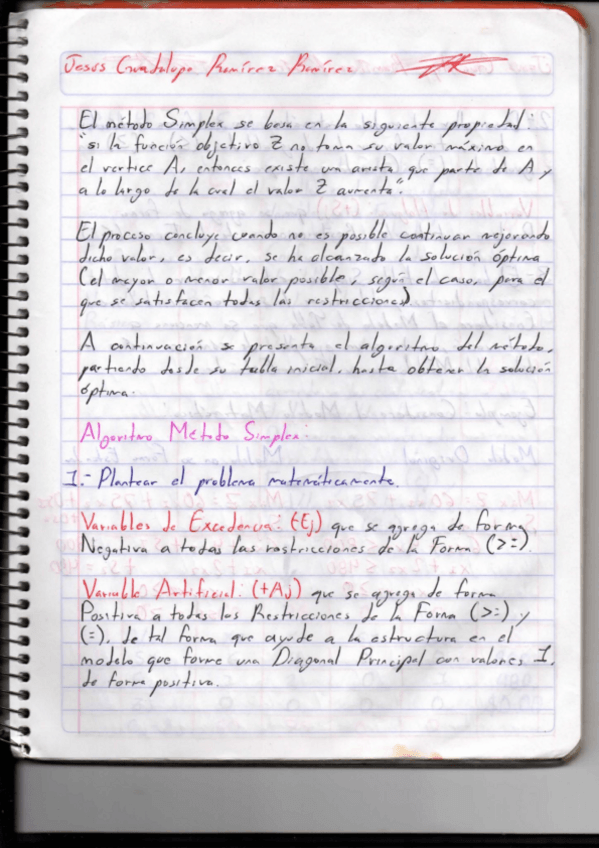 Jesús Guadalupe Ramírez Ramírez
El método Simplex se basa en la siguiente propiedad:
"si la función objetivo Z no toma su valor máximo en
el vertice A, entonces existe una arista que parte de A y
a lo largo de la cual el valor Z aumenta".
El proceso concluye cuando no es posible continuar mejorando
dicho valor, es decir, se ha alcanzado la solución óptima
(el mayor o menor valor posible, según el caso, para el
que se satisfacen todas las restricciones)
A continuación se presenta el algoritmo del método,
partiendo desde su tabla inicial, hasta obtener la solución
óptima.
Algoritmo Método Simplex:
1.- Plantear el problema matemáticamente.
Variables de Excedencia: (-Ej) que se agrega de forma
Negativa a todas las restricciones de la Forma (>=).
Variable Artificial: (+Aj) que se agrega de forma
Positiva a todas las Restricciones de la Forma (>=) y
(=), de tal forma que ayude a la estructura en el
modelo que forme una Diagonal Principal con valores 1,
de forma positiva.